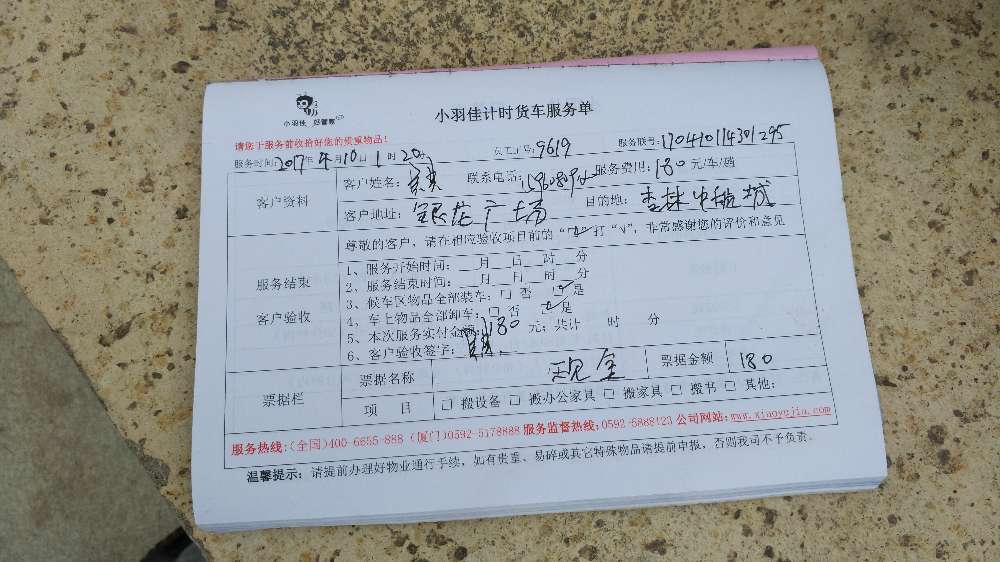 小羽佳 好管家
小羽佳计时货车服务单
请您于服务前收拾好您的贵重物品!
服务时间:2017年4月10日1时20分 员工工号:9619 服务联号:170410114301295
客户资料 客户姓名: 联系电话: 服务费用:180元/车/趟
客户地址:银龙广场 目的地:杏林中航城
尊敬的客户,请在相应验收项目前的“□”打“√”,非常感谢您的评价和意见
服务结束
客户验收
1、服务开始时间:__月__日__时__分
2、服务结束时间:__月__日__时__分
3、候车区物品全部装车:□ 否 ☑是
4、车上物品全部卸车:□ 否 ☑是
5、本次服务实付金额:180元;共计 时 分
6、客户验收签字:
票据栏 票据名称 现金 票据金额 180
项 目 □ 搬设备 □ 搬办公家具 □ 搬家具 □ 搬书 □ 其他:
服务热线:(全国)400-6655-888 (厦门)0592-5178888 服务监督热线:0592-6888123 公司网站:www.xiaoyujia.com
温馨提示:请提前办理好物业通行手续,如有贵重、易碎或其它特殊物品请提前申报,否则我司不予负责。